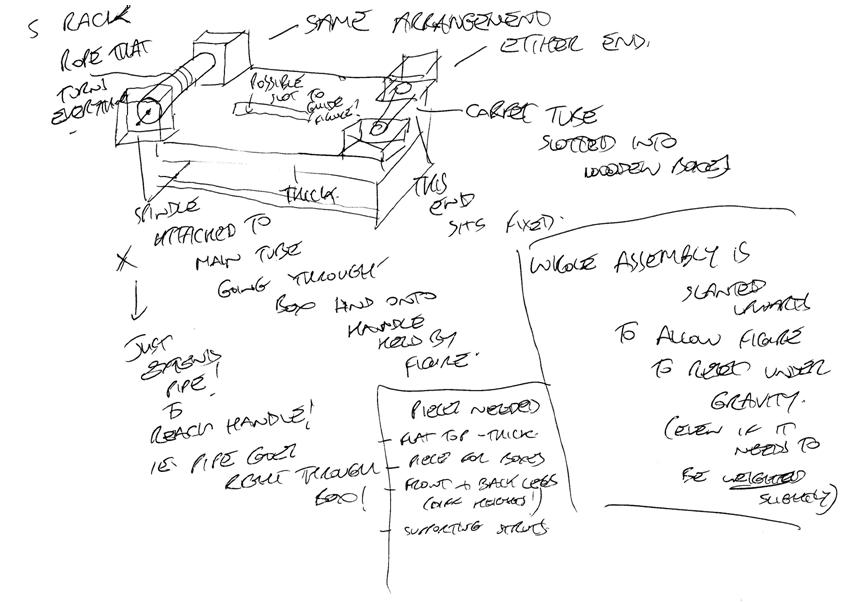 S RACK
ROPE THAT
TURNS
EVERYTHING
SAME ARRANGEMEND
ETIHER END.
POSSIBLE
SLOT TO
GUIDE
FIGURE?
CARPET TUBE
SLOTTED INTO
WOODEN BOXES
THICK.
THIS
END
SITS FIXED.
SPINDLE
ATTACHED TO
MAIN TUBE
GOING THROUGH
BOX AND ONTO
HANDLE
HELD BY
FIGURE.
X
JUST
EXTEND
PIPE!
TO
REACH HANDLE!
IE. PIPE GOES
RIGHT THROUGH
BOX!
PIECES NEEDED
- FLAT TOP - THICK.
- PIECES FOR BOXES
- FRONT + BACK LEGS
(DIFF HEIGHTS!)
- SUPPORTING STRUTS
WHOLE ASSEMBLY IS
SLANTED
UPWARDS
TO ALLOW FIGURE
TO RESET UNDER
GRAVITY.
(EVEN IF IT
NEEDS TO
BE WEIGHTED
SLIGHTLY)